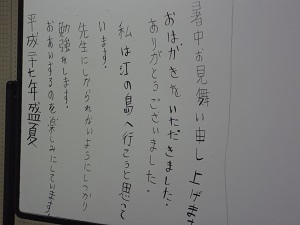 暑中お見舞い申し上げます
おはがきをいただきました。
ありがとうございました。
私は江の島へ行こうと思って
います。
先生にしかられないようにしっかり
勉強をします。
おあいするのを楽しみにしています。
平成二十七年盛夏